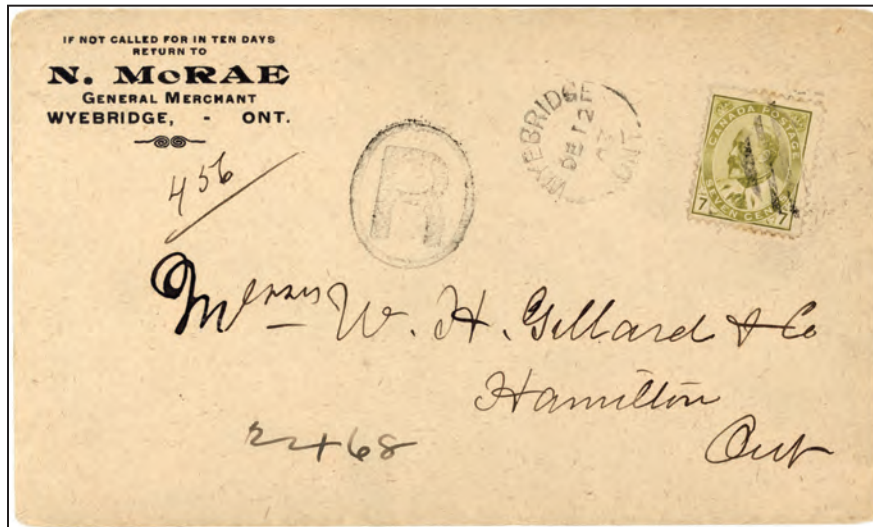 IF NOT CALLED FOR IN TEN DAYS
RETURN TO
N. McRAE
GENERAL MERCHANT
WYEBRIDGE, - ONT.
456
R
WYEBRIDGE
DE 12
ONT.
CANADA POSTAGE
SEVEN CENTS
7 7
Messrs W. H. Gillard & Co
Hamilton
Ont
2468